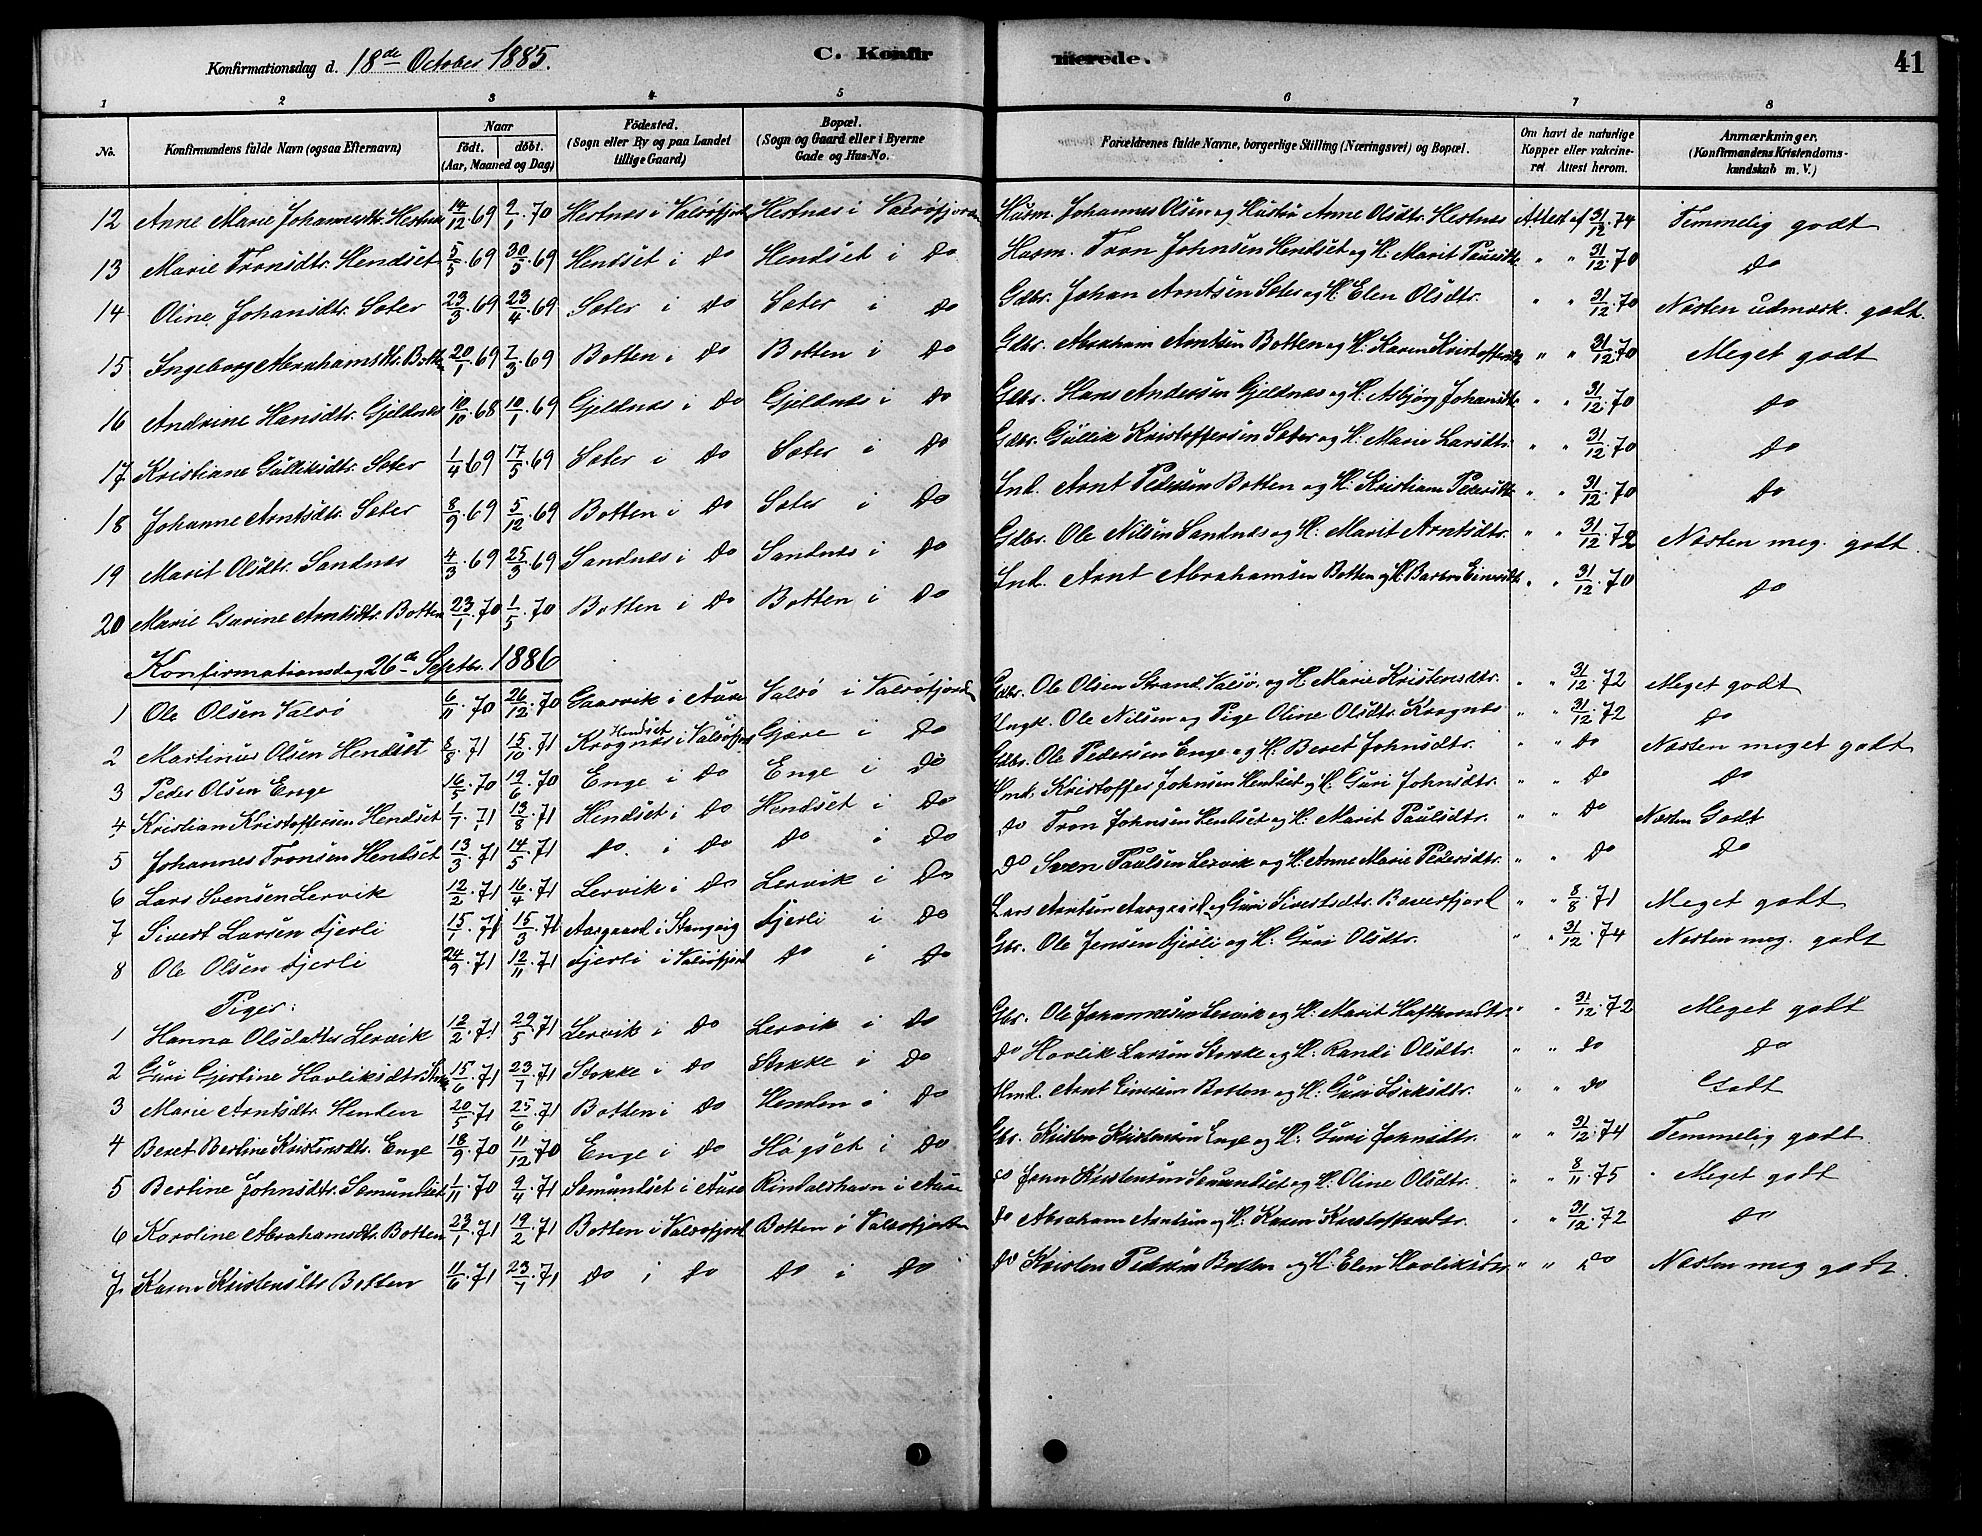 Konfirmationsdag d. 18de October 1885. C. Konfirmerede. 41
1 2 3 4 5 6 7 8
No. Konfirmandens fulde Navn (ogsaa Efternavn) Naar födt. döbt. (Aar, Maaned og Dag) Födested. (Sogn eller By og paa Landet tillige Gaard) Bopæl. (Sogn og Gaard eller i Byerne Gade og Hus-No. Forældrenes fulde Navne, borgerlige Stilling (Næringsvei) og Bopæl. Om havt de naturlige Kopper eller vakcineret Attest herom. Anmærkninger. (Konfirmandens Kristendomskundskab m. V.)
12 Anne Marie Johannesdtr. Hestnæs 14/12.69 2/1.70 Hestnæs i Valsöfjord Hestnæs i Valsöfjorden Husm. Johannes Olsen og Hustru Anne Olsdtr. Hestnæs Attest af 31/12.74 Temmelig godt
13 Marie Tronsdtr. Hendset 5/5.69 30/5.69 Hendset i do Hendset i do Husm. Tron Johnsen Hendset og H: Marit Paulsdtr " " 31/12.70 do
14 Oline Johansdtr. Sæter 23/3.69 23/4.69 Sæter i do Sæter i do Gdbr. Johan Arntsen Sæter og H. Elen Olsdtr. " " 31/12.70 Næsten udmærk. godt.
15 Ingeborg Abrahamsdtr. Botten 20/1.69 7/3.69 Botten i do Botten i do Gdbr. Abraham Arntsen Botten og H. Karen Kristoffersdtr " " 31/12.70 Meget godt
16 Andrine Hansdtr. Gjeldnæs 10/10.68 10/1.69 Gjeldnæs i do Gjeldnæs i do Gdbr. Hans Andersen Gjeldnæs og H. Asbjørg Johansdtr " " 31/12.70 do
17 Kristiane Gulliksdtr. Sæter 1/4.69 17/5.69 Sæter i do Sæter i do Gdbr. Gullik Kristoffersen Sæter og H. Marie Larsdtr. " " 31/12.70 do
18 Johanne Arntsdtr. Sæter 8/9.69 5/12.69 Botten i do Sæter i do Ind. Arnt Pedersen Botten og H. Kristiane Pedersdtr " " 31/12.70 do
19 Marit Olsdtr. Sandnæs 4/3.69 25/3.69 Sandnæs i do Sandnæs i do Gdbr. Ole Nilsen Sandnæs og H: Marit Arntsdtr. " " 31/12.72 Næsten meg. godt.
20 Marie Gurine Arntsdtr. Botten 23/1.70 1/5.70 Botten i do Botten i do Ind. Arnt Abrahamsen Botten og H. Barbro Einersdtr " " 31/12.70 do
Konfirmationsdag 26de Septbr. 1886
1 Ole Olsen Valsö 6/11.70 26/12.70 Gaasvik i Aure Valsö i Valsöfjord Gdbr. Ole Olsen Strand Valsö og H. Marie Kristensdtr. " " 31/12.72 Meget godt
2 Martinus Olsen Hendset 8/8.71 15/10.71 Hendset Krognæs i Valsöfjord Gjøre i do Ungk. Ole Nilsen og Pige Oline Olsdtr. Krognæs " " 31/12.72 do
3 Peder Olsen Enge 16/5.70 19/6.70 Enge i do Enge i do Gdbr. Ole Pedersen Enge og H. Beret Johnsdtr. " " do Næsten meget godt
4 Kristian Kristoffersen Hendset 1/7.71 13/8.71 Hendset i do Hendset i do Hmd. Kristoffer Johnsen Hendset og H. Guri Johnsdtr. " " do do
5 Johannes Tronsen Hendset 13/3.71 14/5.71 do. i do do i do do Tron Johnsen Hendset og H. Marit Paulsdtr. " " do Næsten Godt
6 Lars Svensen Lervik 12/2.71 16/4.71 Lervik i do Lervik i do do Sven Paulsen Lervik og H. Anne Marie Pedersdtr. " " do do
7 Sivert Larsen Fjerli 15/1.71 15/3.71 Aasgaard i Stangvig Fjerli i do Lars Arntsen Aasgaard og Guri Sivertsdtr. Bæverfjord " " 8/8.71 Meget godt
8 Ole Olsen Fjerli 24/9.71 12/11.71 Fjerli i Valsöfjord do i do Gbr. Ole Jensen Fjerli og H. Guri Olsdtr. " " 31/12.74 Næsten meg. godt
Piger:
1 Hanna Olsdatter Lervik 12/2.71 29/5.71 Lervik i do Lervik i do Gbr. Ole Johannesen Lervik og H. Marit Halfvorsdtr " " 31/12.72 Meget godt
2 Guri Gjertine Havliksdtr 15/6.71 23/7.71 Stokke i do Stokke i do do Havlik Larsen Stokke og H. Randi Olsdtr. " " do do
3 Marie Arntsdtr. Henden 20/5.71 25/6.71 Botten i do Henden i do Hmd. Arnt Einersen Botten og H. Guri Isaksdtr. " " do Godt
4 Beret Bertine Kristensdtr. Enge 18/9.70 11/12.70 Enge i do Högset i do Gbr. Kristen Kristensen Enge og H. Guri Johnsdtr. " " 31/12.74 Temmelig godt.
5 Bertine Johnsdtr. Semundset 1/11.70 9/4.71 Semundset i Aure Rindalshavn i Aure do John Kristensen Semundset og H. Oline Olsdtr. " " 8/11.75 Meget godt
6 Karoline Abrahamsdtr. Botten 23/1.71 19/2.71 Botten i Valsöfjord Botten i Valsöfjorden do Abraham Arntsen og H. Karen Kristoffersdtr. " " 31/12.72 do
7. Karen Kristensdtr Botten 11/6.71 23/7.71 do i do do i do do Kristen Pedersen Botten og H. Elen Havliksdtr " " do Næsten meg godt.